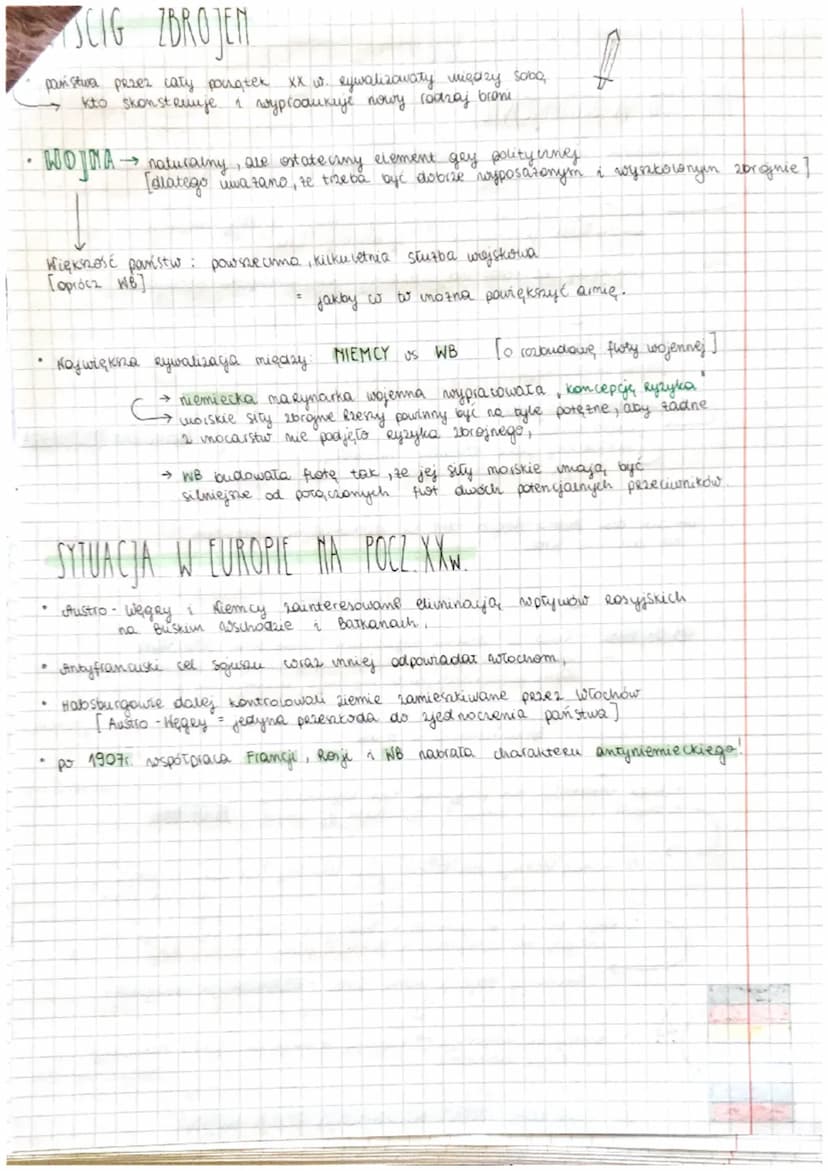 ŚCIG ZBROJEŃ
• państwa przez cały początek XX w. rywalizowały między sobą,
→ kto skonstruuje i wyprodukuje nowy rodzaj broni
• WOJNA → naturalny, ale ostateczny element gry politycznej
[dlatego uważano, że trzeba być dobrze wyposażonym i wyszkolonym zbrojnie]
Większość państw : powszechna, kilkuletnia służba wojskowa
[oprócz WB]
= jakby co to można powiększyć armię.
• Największa rywalizacja między: NIEMCY vs WB [o rozbudowę floty wojennej]
→ niemiecka marynarka wojenna wypracowała „koncepcję ryzyka"
→ morskie siły zbrojne Rzeszy powinny być na tyle potężne, aby żadne
z mocarstw nie podjęło ryzyka zbrojnego,
→ WB budowała flotę tak, że jej siły morskie mają być
silniejsze od połączonych flot dwóch potencjalnych przeciwników.
SYTUACJA W EUROPIE NA POCZ. XXw.
• Austro-Węgry i Niemcy zainteresowane eliminacją wpływów rosyjskich
na Bliskim Wschodzie i Bałkanach,
• Antyfrancuski cel sojuszu coraz mniej odpowiadał Włochom,
• Habsburgowie dalej kontrolowali ziemie zamieszkiwane przez Włochów
[Austro-Węgry = jedyna przeszkoda do zjednoczenia państwa]
• po 1907r. współpraca Francji, Rosji i WB nabrała charakteru antyniemieckiego!